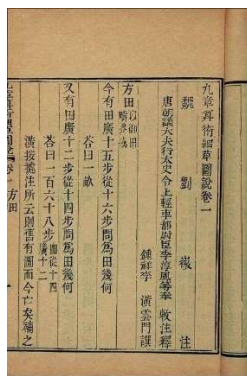 九章算術細草圖說卷一
魏 劉 徽 注
唐朝議大夫行太史令上輕車都尉臣李淳風等奉 敕注釋
鍾祥李 潢雲門譔
方田 以御田疇界域
今有田廣十五步從十六步問爲田幾何
荅曰一畝
又有田廣十二步從十四步問爲田幾何
荅曰一百六十八步 圖從十四廣十二
潢按舊注所云則舊有圖而今亡矣補之
卷一 方田 一